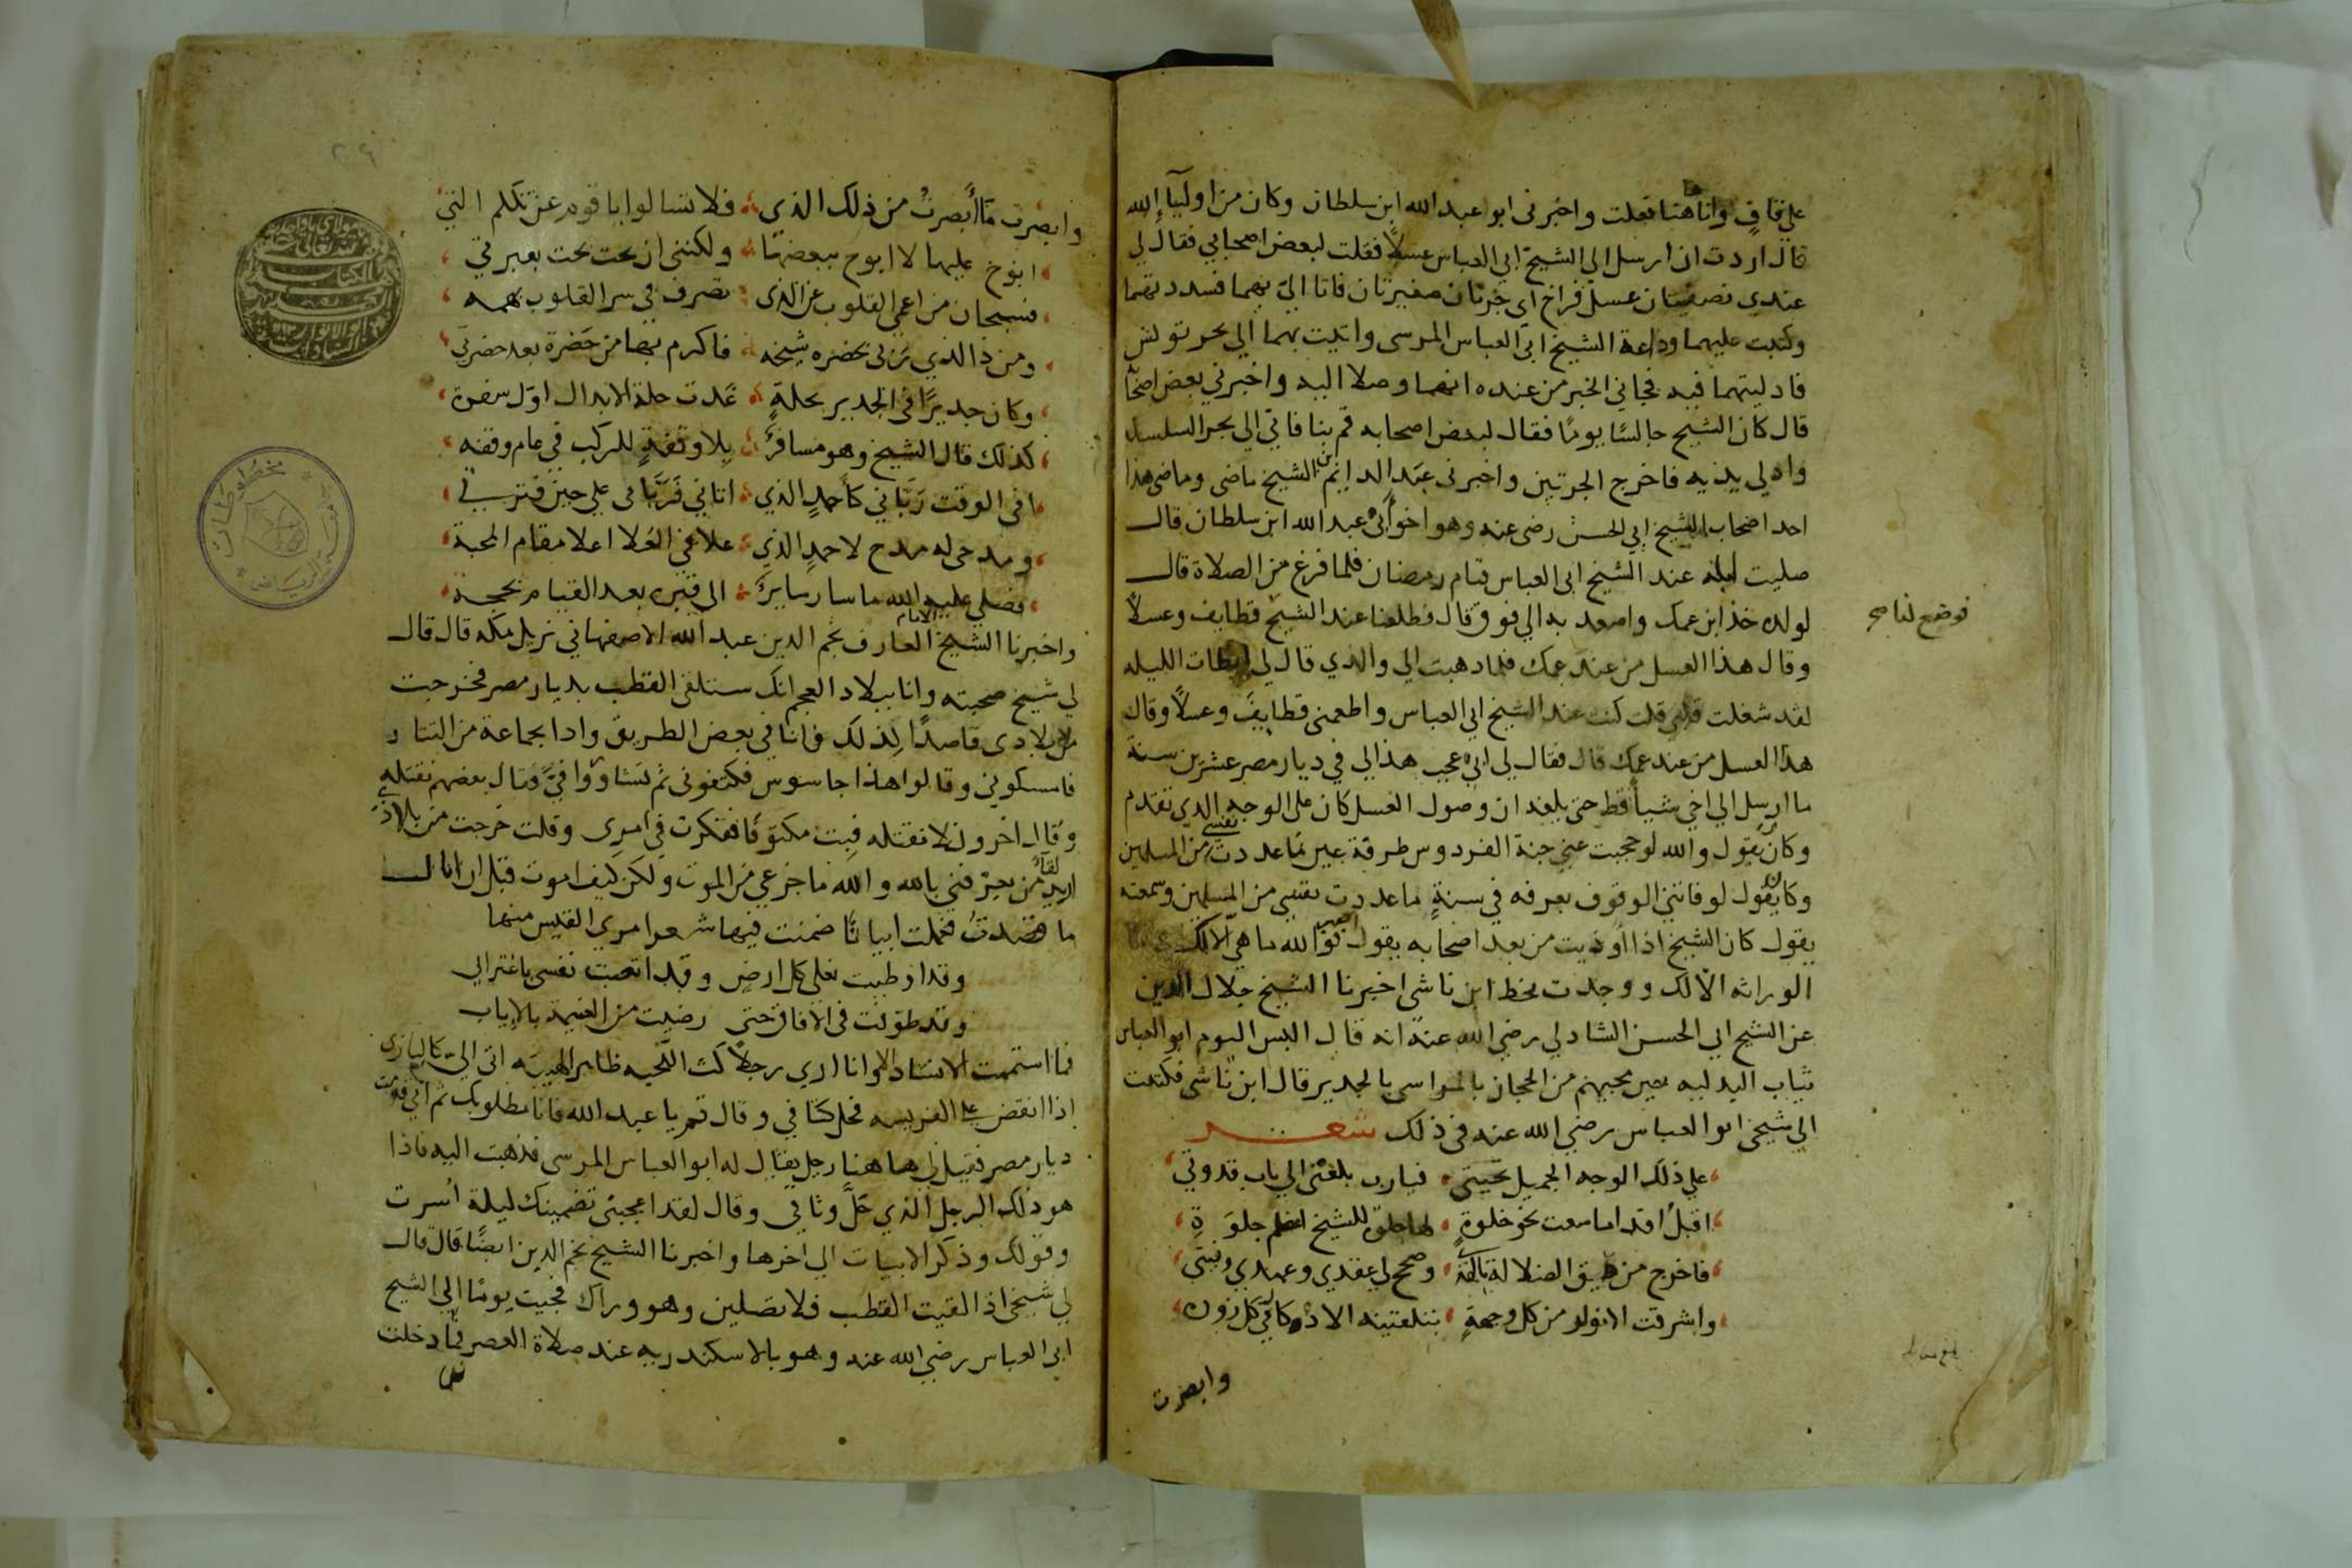 على قاف وانا هاهنا فعلت واخبرنى ابو عبد الله ابن سلطان وكان من اوليآء الله
قال اردت ان ارسل الى الشيخ ابي العباس عسلاً فقلت لبعض اصحابي فقال لي
عندي نصفيتان عسل فراخ اى جرتان صغيرتان فاتا اليّ بهما فسددتهما
وكتبت عليهما وداعة الشيخ ابى العباس المرسى واتيت بهما الي بحر تونس
فادليتهما فيه فجاني الخبر من عنده انهما وصلا اليه واخبرني بعض اصحابه
قال كان الشيخ جالسًا يومًا فقال لبعض اصحابه قم بنا فاتي الي بحر السلسلة
وادلي يديه فاخرج الجرتين واخبرنى عبد الدايم بن الشيخ ماضى وماضى هذا
احد اصحاب الشيخ ابي الحسن رضى عنه وهو اخو ابى عبد الله ابن سلطان قال
صليت ليلة عند الشيخ ابى العباس قيام رمضان فلما فرغ من الصلاة قال
لولده خذ ابن عمك واصعد به الي فوق قال فطلعنا عند الشيخ قطايف وعسلاً
فوضع لنا صح
وقال هذا العسل من عند عمك فلما ذهبت الي والدي قال لي ابطات الليله
لقد شغلت قلبي قلت كنت عند الشيخ ابي العباس واطعمنى قطايف وعسلاً وقال
هذا العسل من عند عمك قال فقال لي ابي عجب هذا لي في ديار مصر عشرين سنة
ما ارسل الي اخي شيأ قط حتى بلغه ان وصول العسل كان على الوجه الذي تقدم
وكان يقول والله لو حجبت عني جنة الفردوس طرفة عين ما عددت نفسى من المسلمين
وكان يقول لو فاتنى الوقوف بعرفه في سنةٍ ما عددت نفسى من المسلمين وسمعته
يقول كان الشيخ اذا اوذيت من بعد اصحابه يقول اصبر فوالله ما هي الا لك
الوراثه الا لك ووجدت بخط ابن ناشى اخبرنا الشيخ جلال الدين
عن الشيخ ابي الحسن الشاذلي رضي الله عنه انه قال البس اليوم ابو العباس
ثياب البدليه حين مجيهم من الحجاز بالمراسى بالجدير قال ابن ناشى فكتبت
الي شيخى ابو العباس رضي الله عنه فى ذلك شعر
على ذلك الوجه الجميل تحيتى فيارب بلغنى الي باب قدوتي
اقبل اقداما سعت نحو خلوةٍ لها حلة للشيخ اعظم جلوَةِ
فاخرج من ضيق الضلالة بالكفة وصحح لي عقدي وعهدي ونيتى
واشرقت الانوار من كل وجهةٍ
وابصرت
وابصرت ما أبصرتُ من ذلك الذي فلا تسالوا يا قوم عن تكلم التي
ابوح عليها لا ابوح ببعضها ولكننى ان بحت بحت بعبرتي
فسبحان من اعمى القلوب عن الذى تصرف في سر القلوب بهمه
ومن ذا الذي بحضره شيخه فاكرم بها من حَضرة بعد حضرتي
وكان جديرًا فى الجدير بحلةٍ غدت حلة الابدال اوّل سفرة
كذلك قال الشيخ وهو مسافرٌ بلا وقفةٍ للركب في عام وقفه
افى الوقت رَبّاني كاحمدٍ الذي اتاني فَرَبّانى على حين فترتي
ومدحى له مدح لاحمدٍ الذي علا فى العُلا اعلا مقام المحبة
فصلى عليه الله ما سار سايرٌ الى قبره بعد القيام بحجة
واخبرنا الشيخ الامام العارف نجم الدين عبد الله الاصفهاني نزيل مكه قال قال
لي شيخ صحبته وانا ببلاد العجم انك ستلقى القطب بديار مصر فخرجت
من بلادى قاصدًا لذلك فانا في بعض الطريق واذا بجماعة من التتار
فامسكوني وقالوا هذا جاسوس فكتفونى ثم تشاوروا فيَّ فقال بعضهم نقتله
وقال اخرون لا نقتله فبت مكتوفًا ففكرت في امرى وقلت خرجت من بلادي
اريد لقآء من يعرّفني بالله والله ما جزعي من الموت ولكن كيف اموت قبل ان انال
ما قصدتُ فعملت ابياتًا ضمنت فيها شعر امرئ القيس منها
وقد اوطيت نعلى كل ارض وقد اتعبت نفسى باغترابي
وقد طوّلت فى الافاق حتى رضيت من الغنيمة بالاياب
فما استتممت الانشاد الا وانا ارى رجلاً كث اللحيه ظاهر الهيبه اتى اليّ كالبازى
اذا انقض على الفريسه فحل كتافي وقال قم يا عبد الله فانا مطلوبك ثم اني قدمت
ديار مصر فقيل لي هاهنا رجل يقال له ابو العباس المرسى فذهبت اليه فاذا
هو ذلك الرجل الذي حَلَّ وثاقي وقال لقد اعجبنى تضمينك ليلة اُسرت
وقولك وذكر الابيات الي اخرها واخبرنا الشيخ نجم الدين ايضًا قال قال
لي شيخى اذا لقيت القطب فلا تصلين وهو وراك فجيت يومًا الي الشيخ
ابى العباس رضي الله عنه وهو بالاسكندريه عند صلاة العصر فلما دخلت